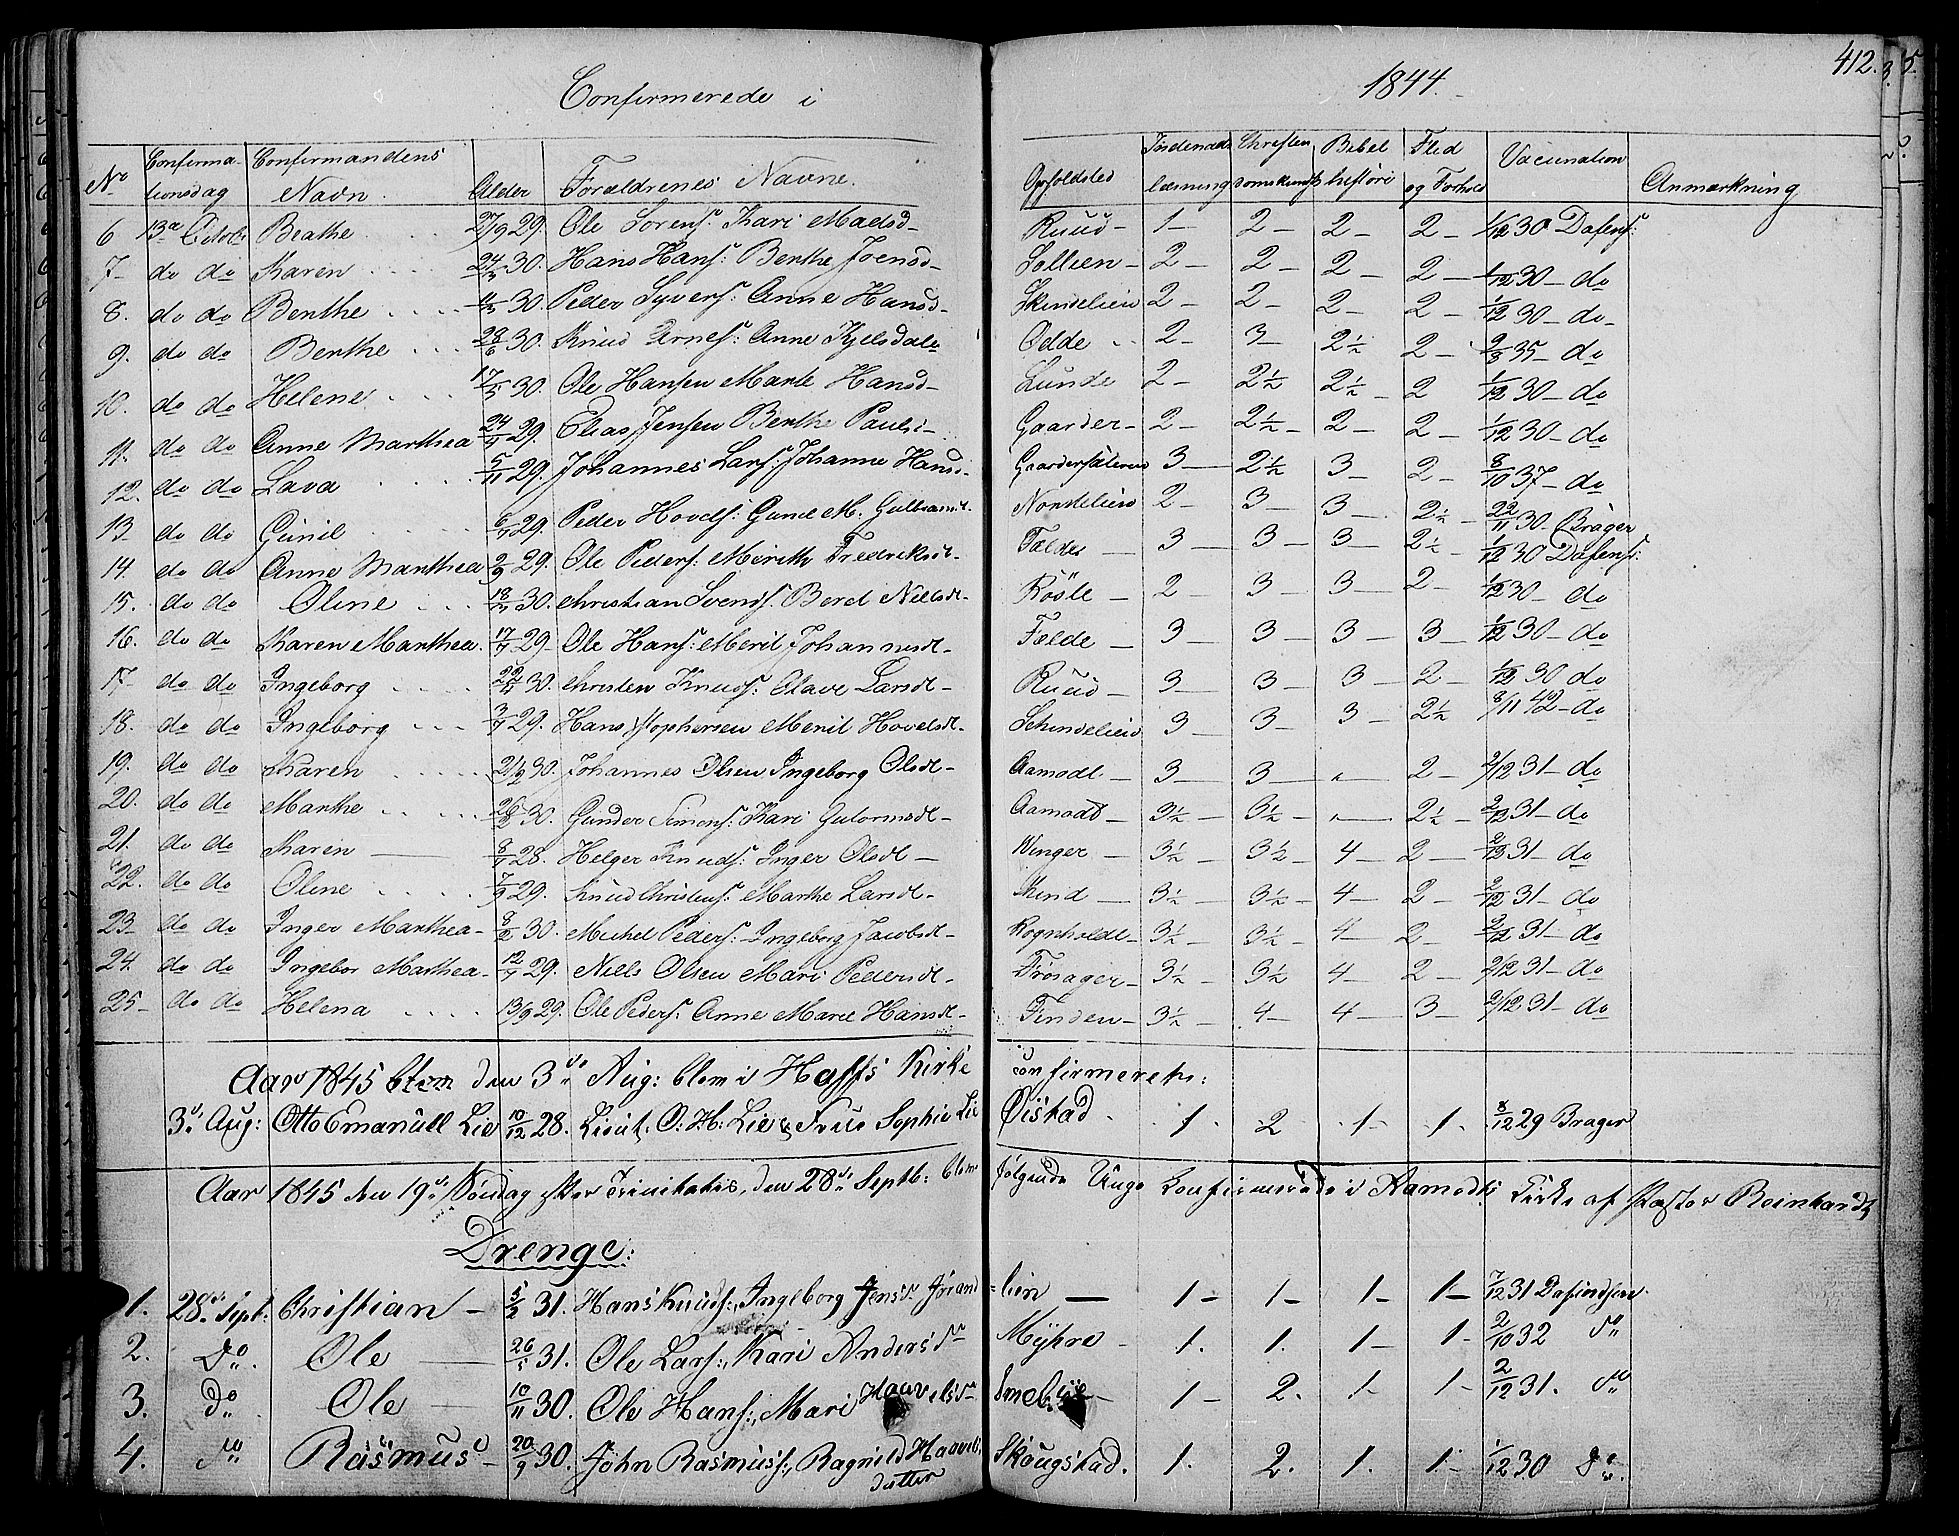 Confirmerede i 1844. 412.
No Confirmationsdag Confirmandens Navn. Alder Forældrenes Navne. Opholdsted Indenads læsning Christen domskundsk Bibel historie Flid og Forhold Vacunation Anmærkning
6 13de Octob: Beathe 27/9 29. Ole Sörens: Kari Madsd- Ruud- 1- 2- 2- 2- 1/12 30 Dafens:
7- do do Karen 30. Hans Hans: Berthe Joensd- Sollien- 2- 2- 2- 2- 1/12 30- do
8. do do Benthe 30. Peder Syvers: Anne Hansd- Skindelien 2- 2- 2- 2- 1/12 30- do-
9. do do Berthe 28/6 30. Knud Arnes: Anne Kjelsdaler Odde 2- 3- 2½ 2- 9/8 35- do
10. do do Helene 17/5 30. Ole Hansen Marte Hansd- Lunde 2- 2½ 2½- 2 1/12 30- do
11. do do Anne Marthea 29. Elias Jensen Berthe Pauls:- Gaarder- 2- 2½- 2- 2- 1/12 30- do
12. do do Lava 5/11 29. Johannes Lars: Johanne Hansd. Gaardersæteren 3- 2½ 3- 2- 8/10 37- do
13- do do Gunil 29. Peder Hovels: Gunil M. Gulbransd. Nordelien 2- 3- 3- 2½- 22/11 30- Brager
14. do do Anne Marthea 2/9 29. Ole Peders: Merithe Fredriksdt- Fældes- 3- 3- 3- 2½- 1/12 30 Dafens:
15. do do Oline 30. Christian Svends: Beret Nielsdt- Rösle- 2- 3- 3- 2- 1/12 30- do
16. do do Karen Marthea. 29- Ole Hans: Merit Johannesdt- Fælde- 3 3- 3- 3- 1/12 30- do
17- do do Ingeborg 30. Christen Knuds: Olave Larsdt- Ruud- 3- 3- 3- 2- 1/12 30 do
18. do do Ingeborg 29. Hans Stophersen Merit Hovelsdt- Schindelien 3- 3- 3- 2½ 8/11 42- do
19. do do Karen 30. Johannes Olsen Ingeborg Olsdt- Aamodt- 3- 3- 2- 2/12 31- do
20. do do Marthe 30. Gunder Simons: Kari Gutormsdt- Aamodt- 3½- 3½- 2½- 2/12 31- do
21. do do Karen 28. Helger Knuds: Inger Olsdt- Winger- 3½- 3½- 4- 2- 2/12 31- do
22. do do Oline 29. Knud Christens: Marthe Larsdt- Skind- 3½- 3½- 4- 2- 2/12 31- do
23- do do Inger Marthea- 8/2 30. Michel Peders: Ingeborg Jacobsdt- Rognholdt- 3½- 3½- 4- 2- 2/12 31- do
24. do do Ingebor Marthea- 29. Niels Olsen Mari Pedersdt- Frösager- 3½- 3½ 4- 2- 2/12 31- do
25- do do Helena 13/9 29. Ole Peders: Anne Marie Hansdt- Finden- 3½- 4- 4- 3- 2/12 31- do
Aar 1845 den 3die Aug: blev i Hoffs Kirke confirmeret:
3die Aug: Otto Emanuell Lie 10/12 28. Lieut: O: H: Lie & Frue Sophie Lie Öistad 1. 2 1- 1. 8/12 29 Brager
Aar 1845 den 19de Söndag efter Trinitatis, den 28de Septb: bleve følgende Unge Confirmerede i Aamodts Kirke af Pastor Reinhardt,
Drenge:
1. 28de Sept: Christian- 31. Hans Knuds:, Ingeborg Jensdr Jörand =lien- 1- 1- 1- 1- 7/12 31 Dafindsen.
2. Do. Ole 26/5 31. Ole Lars:, Kari Andersdr Myhre- 1. 1. 1. 1- 2/10 32 Do
3. Do Ole 10/11 30. Ole Hans:, Mari Haavelsdr Smebye- 1- 2. 1- 1- 2/12 31. Do
4. Do Rasmus- 20/9 30. John Rasmuss:, Ragnild Haavels Datter Skougstad. 1. 2. 1. 1- 1/12 30 Do.